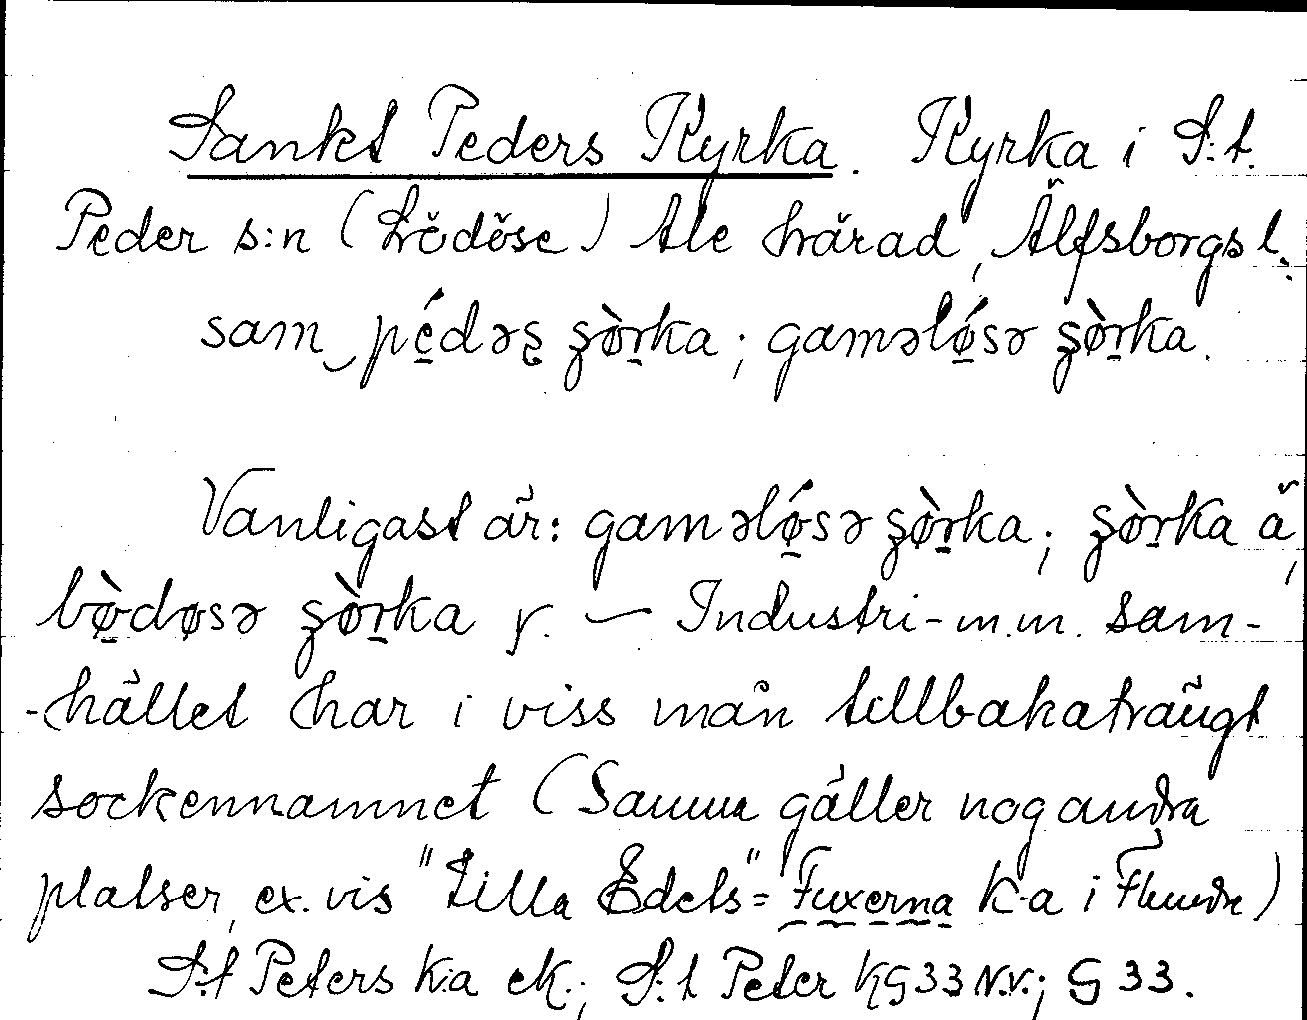 Sankt Peders Kyrka. Kyrka i S:t.
Peder s:n (Lödöse) Ale härad, Älfsborgs l.
sam‿pé̱dəʂ ʂø̀ṟka; gaməlǿ̱sə ʂø̀ṟka.
Vanligast är: gaməlǿ̱sə ʂø̀ṟka; ʂø̀ṟka ä,
lø̱̀døsə ʂø̀ṟka r. — Industri- m.m. sam-
-hället har i viss mån tillbakaträngt
sockennamnet (Samma gäller nog andra
platser, ex. vis "Lilla Edets" = Fuxerna k-a i Flundre)
S:t Peters k:a ek.; S:t Peter KG33 N.V.; G 33.